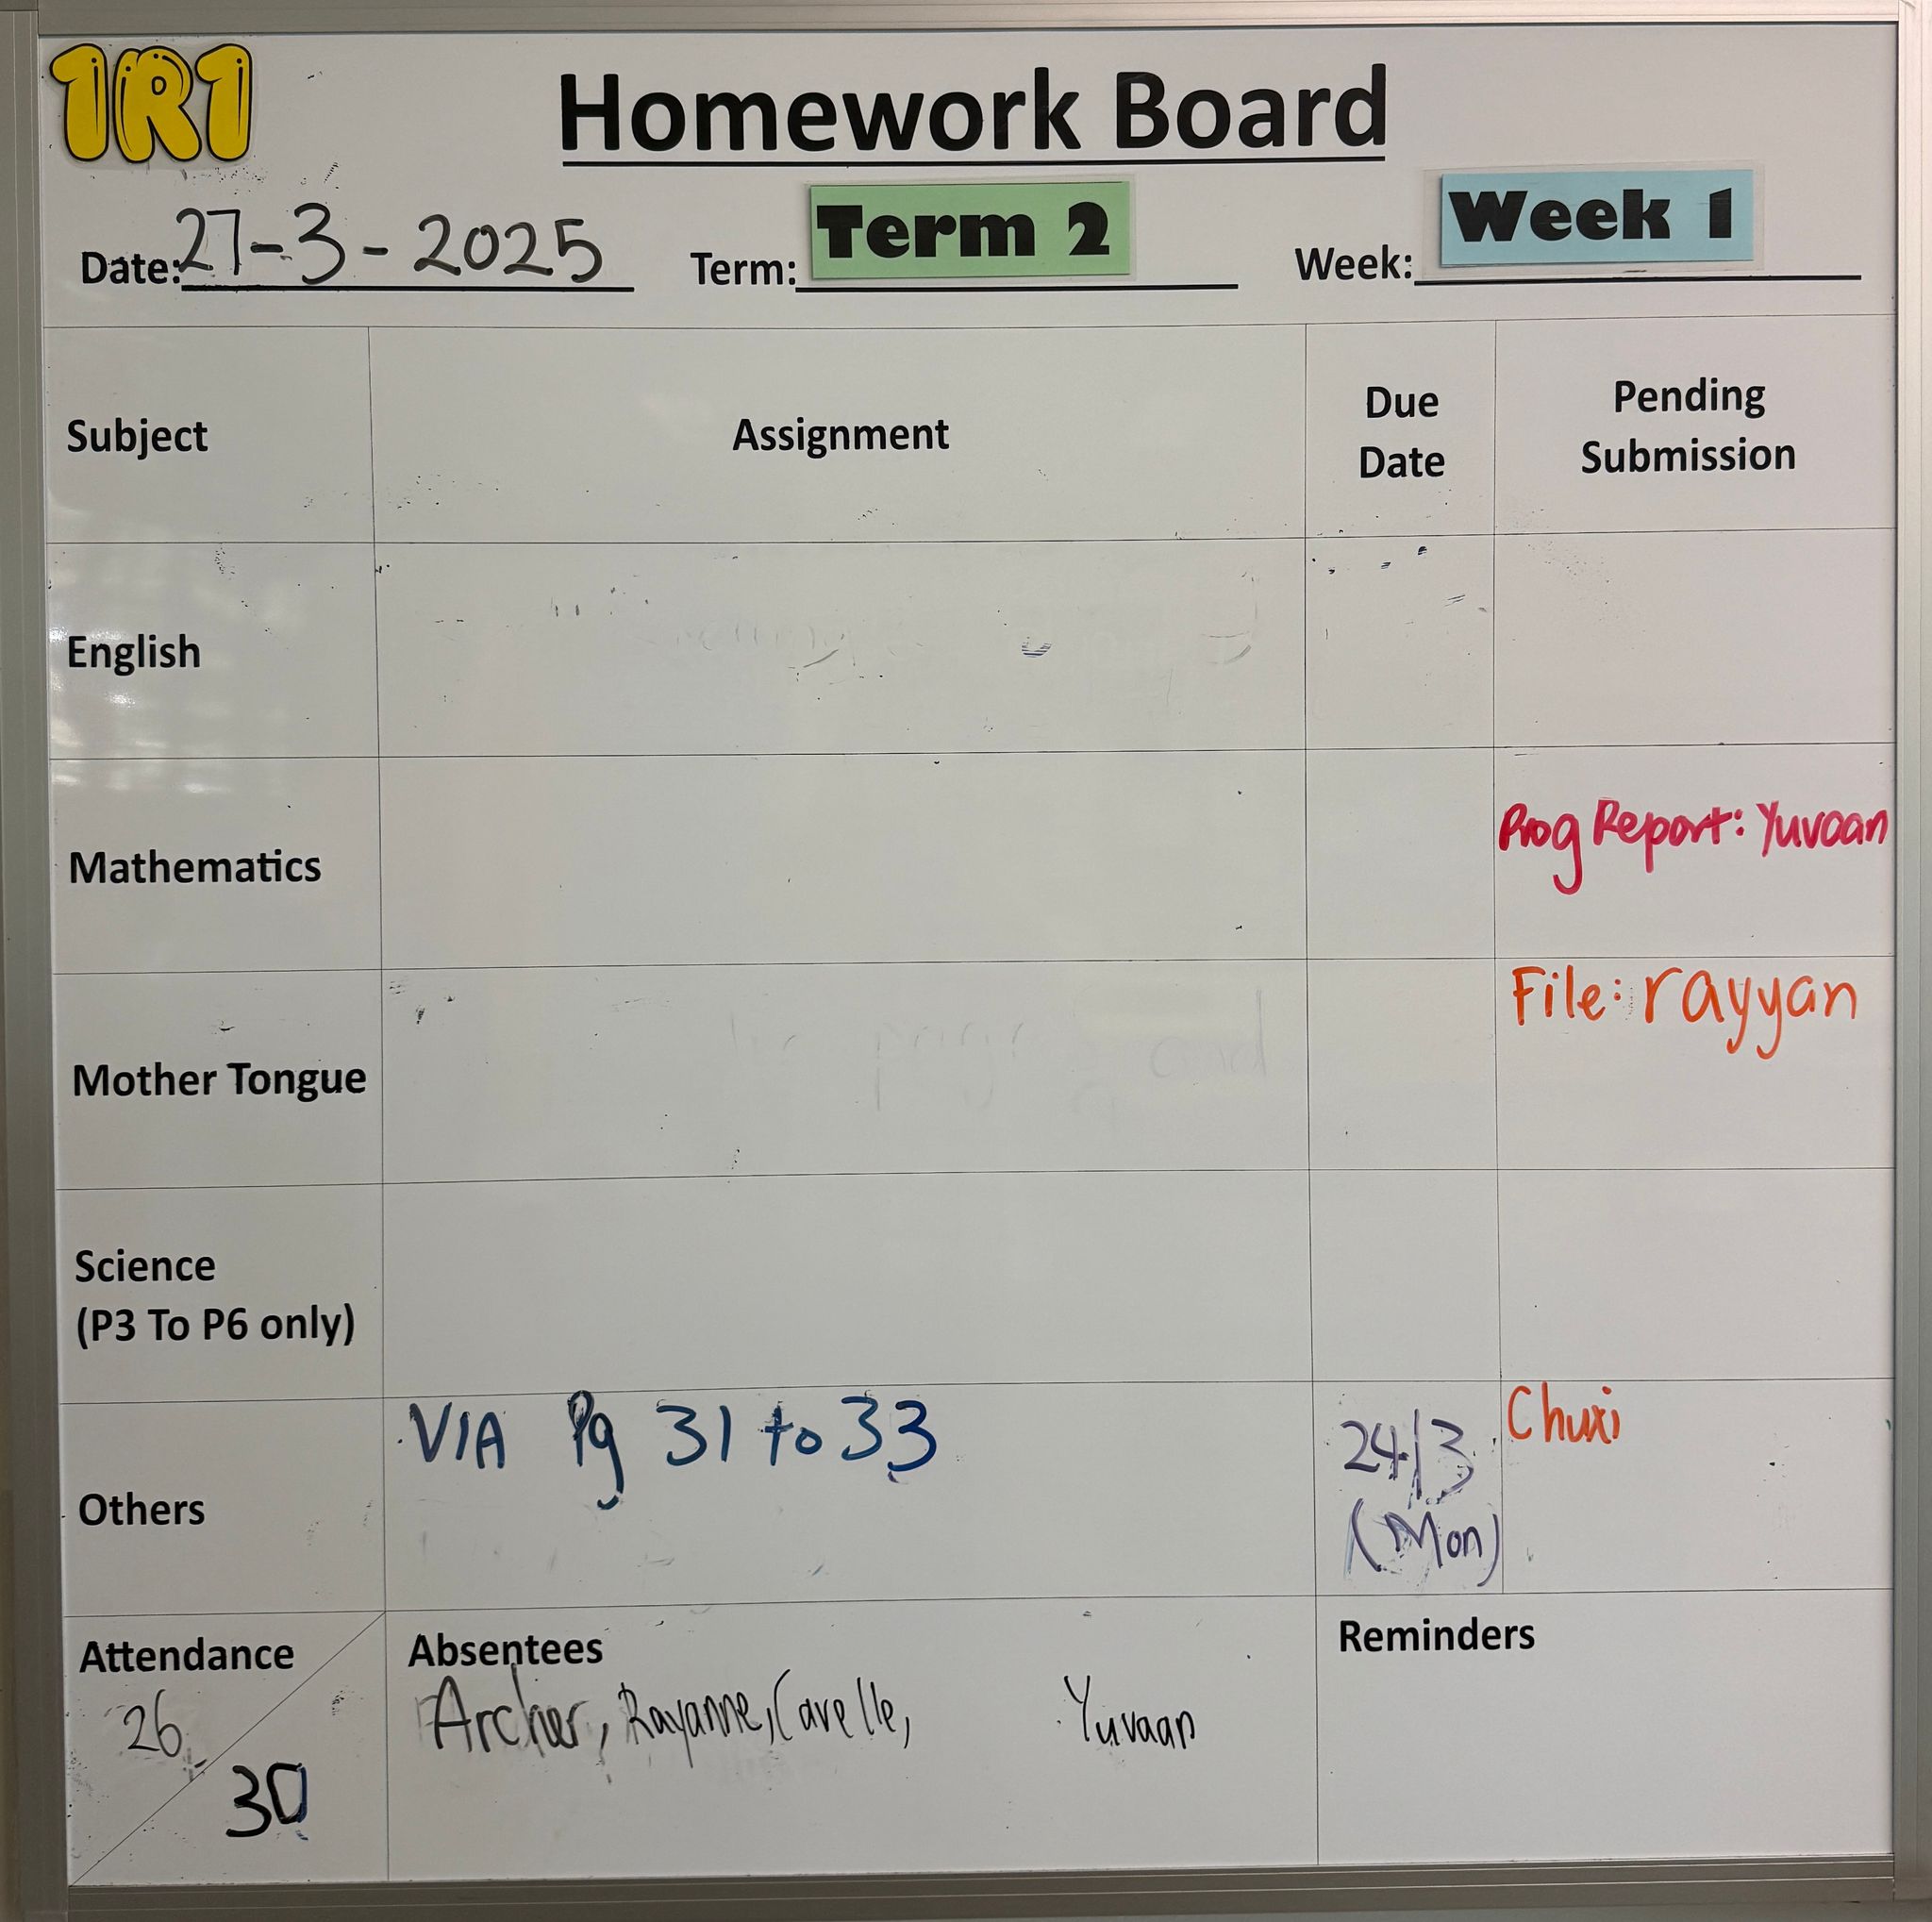 1R1
Homework Board
Date: 27-3-2025 Term: Term 2 Week: Week 1
Subject Assignment Due Date Pending Submission
English
Mathematics Prog Report: Yuvaan
Mother Tongue File: rayyan
Science
(P3 To P6 only)
Others VIA Pg 31 to 33 24/3 (Mon) Chuxi
Attendance Absentees Reminders
26 Archer, Rayanne, Cavelle, Yuvaan
30